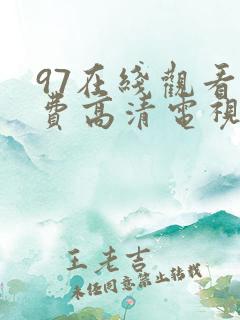 97在綫觀看
費高清電視
王老吉
未经同意禁止转载